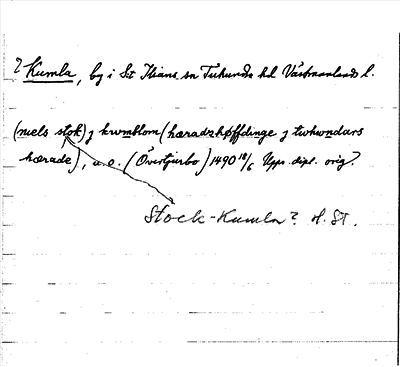 ? Kumla, by i St Ilians sn Tuhundra hd Västmanlands l.
(niels stok) j kwmblom (hæradzhøffdinge j twhwndars
hærade), u.o. (Övertjurbo) 1490 18/6 Upps. dipl. orig?
Stock-Kumla? H. St.